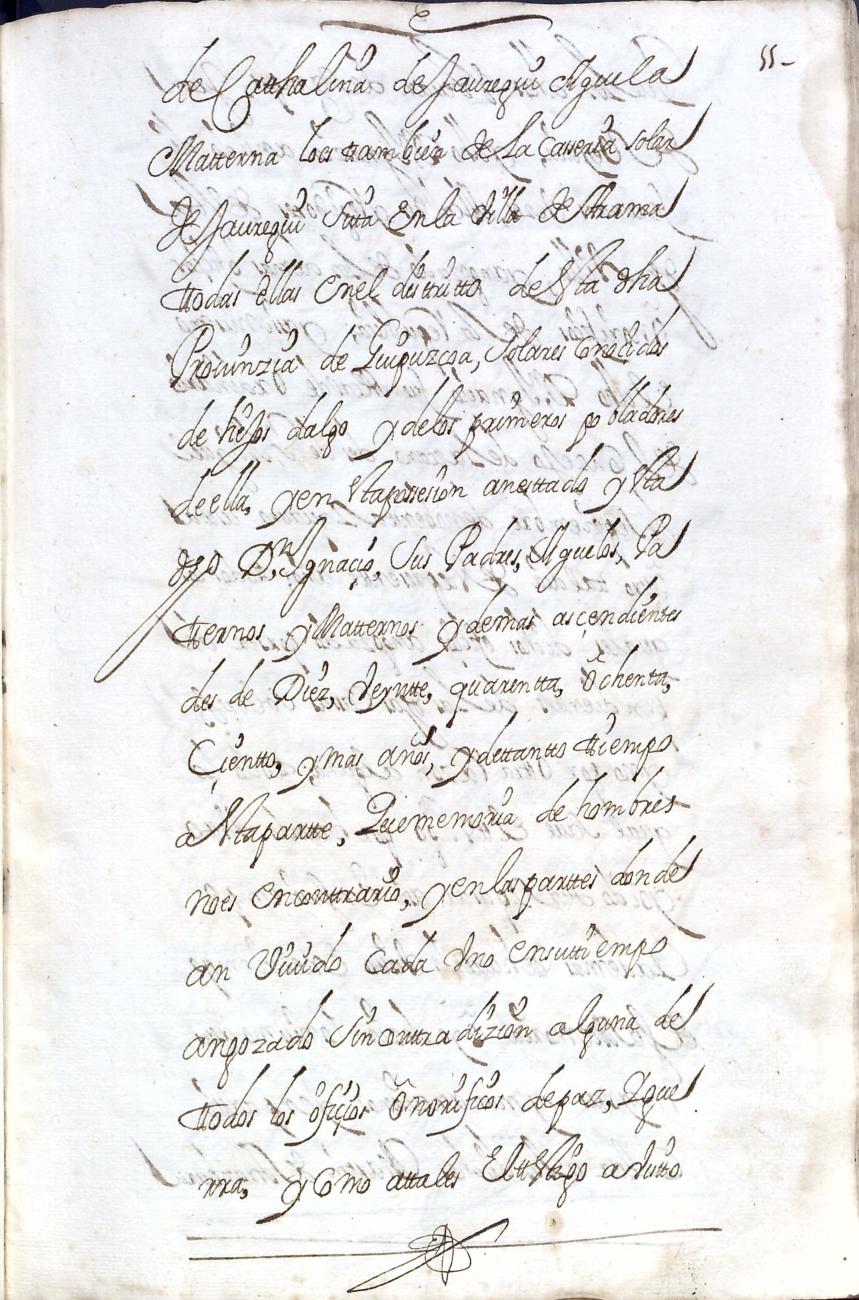 55-
de Catthalina de Jauregui Aguela
Matterna lo es ttambien de la Casseria solar
de Jauregui sita en la Villa de Ytrama
ttodas ellas en el disttritto de esta dha
Provinzia de Guipuzcoa, solares conocidos
de hijos dalgo y de los primeros pobladores
de ella, y en esta possesion an esttado y esta
dho Dn Ygnacio, sus Padres, Aguelos, Pa
tternos y Matternos y demas asçendientes
des de Diez, Veyntte, quarentta, ochenta,
Cientto, y mas años, y de ttantto ttiempo
a esta partte, que memoria de hombres
no es en conttrario, y en las parttes donde
an Vivido cada Vno en su ttiempo
an gozado sin conttradizion alguna de
ttodos los ofiçios onorificos de paz, y gue
rra, y como a ttales El ttesttigo a visto